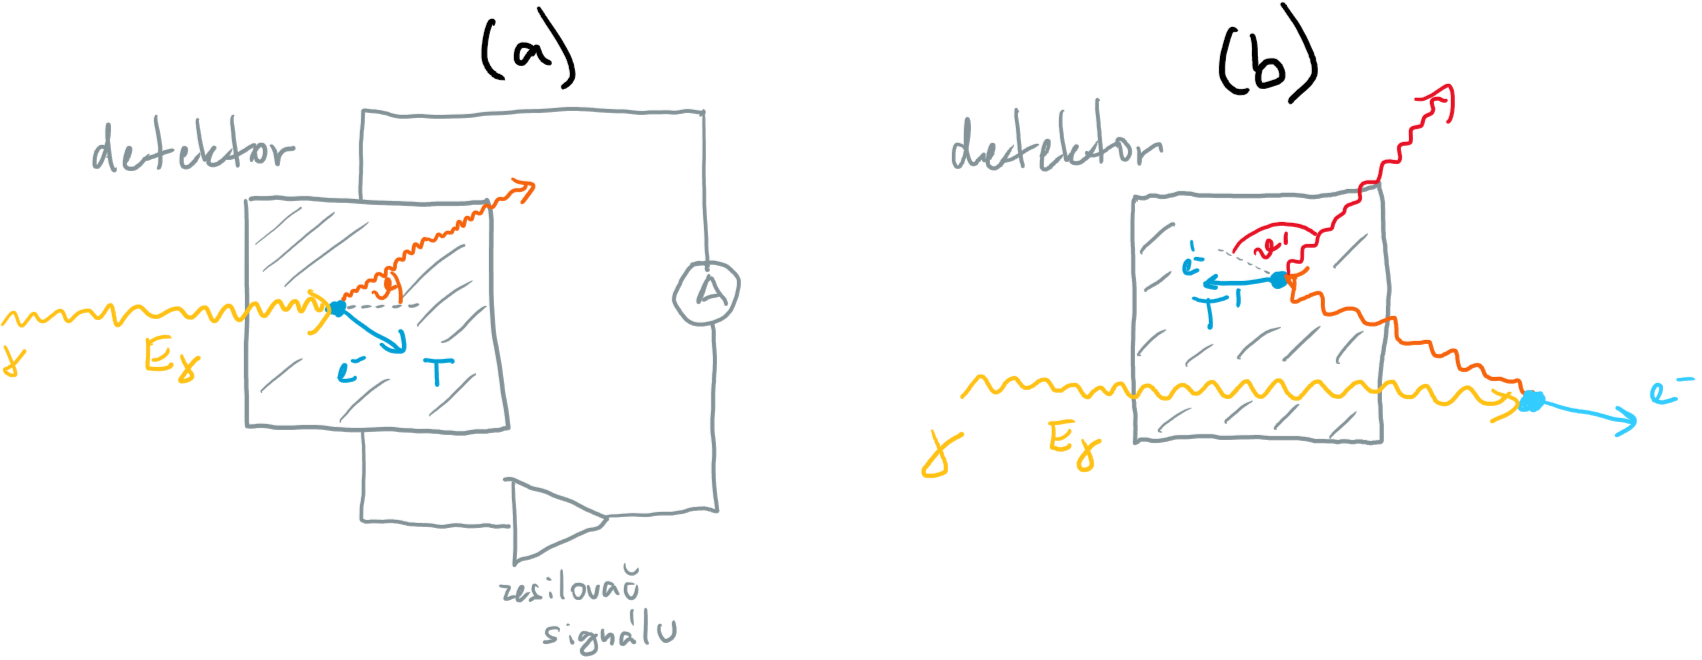 (a)
detektor
ϑ
A
γ
Eγ
e⁻
T
zesilovač
signálu
(b)
detektor
ϑ'
e⁻
T'
γ
Eγ
e⁻